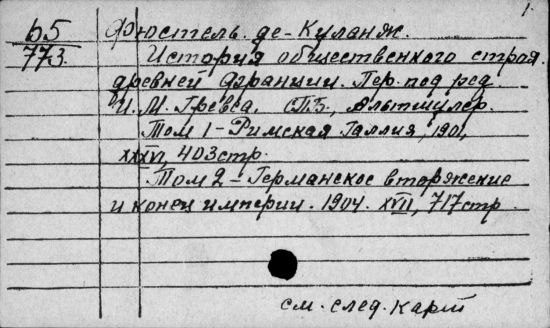 1.
Б5
773.
Фюстель-де-Куланж.
История общественного строя
древней Франции. Пер. под ред.
И. М. Гревса. СПБ., Альтшулер.
Том 1 - Римская Галлия, 1901,
XXXVI, 403 стр.
Том 2 - Германское вторжение
и конец империи. 1904. XVII, 717 стр
см. след. карт